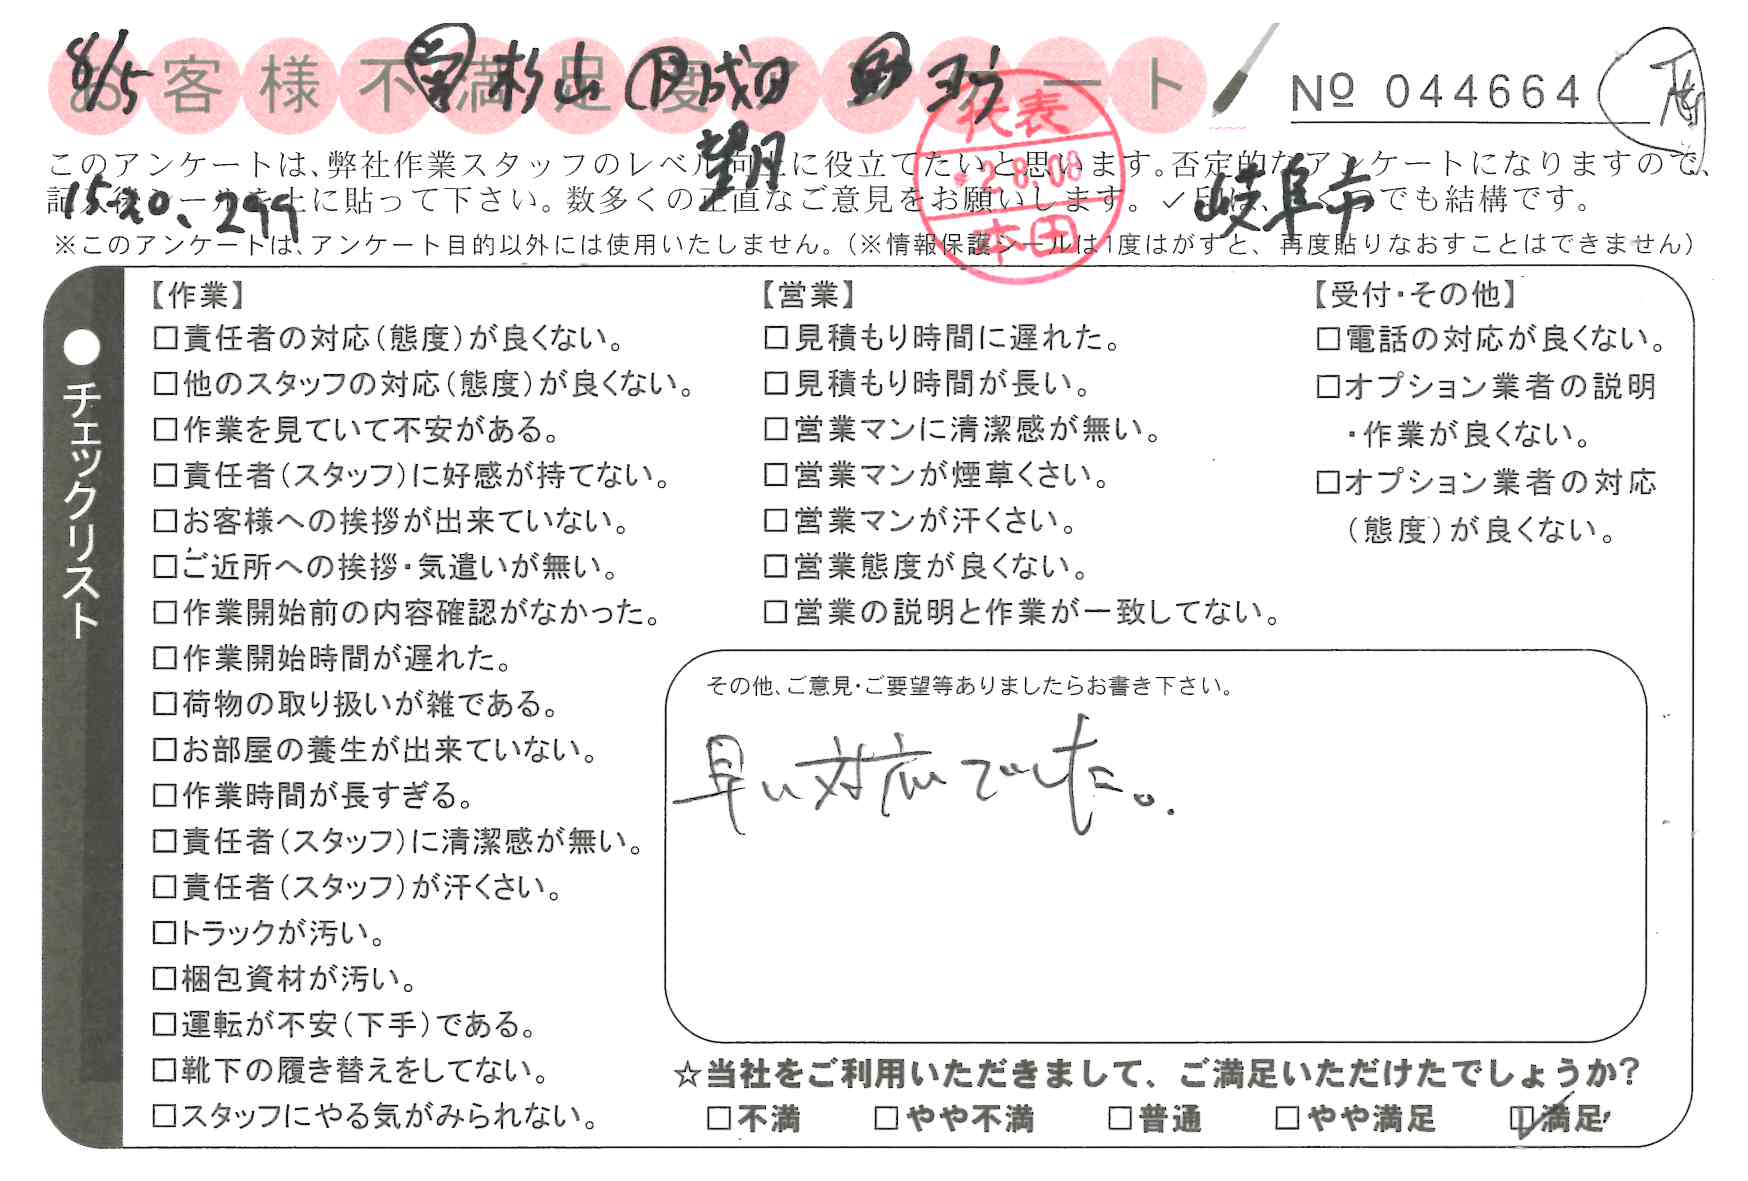 お客様不満足度アンケート
8/5 営 杉山 成田
№ 044664
望月
このアンケートは、弊社作業スタッフのレベル向上に役立てたいと思います。否定的なアンケートになりますので、
記入後シールを上に貼って下さい。数多くの正直なご意見をお願いします。✓印は、いくつでも結構です。
15-20、299
岐阜市
代表
2.8.08
本田
※このアンケートは、アンケート目的以外には使用いたしません。(※情報保護シールは1度はがすと、再度貼りなおすことはできません)
●チェックリスト
【作業】
□責任者の対応(態度)が良くない。
□他のスタッフの対応(態度)が良くない。
□作業を見ていて不安がある。
□責任者(スタッフ)に好感が持てない。
□お客様への挨拶が出来ていない。
□ご近所への挨拶・気遣いが無い。
□作業開始前の内容確認がなかった。
□作業開始時間が遅れた。
□荷物の取り扱いが雑である。
□お部屋の養生が出来ていない。
□作業時間が長すぎる。
□責任者(スタッフ)に清潔感が無い。
□責任者(スタッフ)が汗くさい。
□トラックが汚い。
□梱包資材が汚い。
□運転が不安(下手)である。
□靴下の履き替えをしてない。
□スタッフにやる気がみられない。
【営業】
□見積もり時間に遅れた。
□見積もり時間が長い。
□営業マンに清潔感が無い。
□営業マンが煙草くさい。
□営業マンが汗くさい。
□営業態度が良くない。
□営業の説明と作業が一致してない。
【受付・その他】
□電話の対応が良くない。
□オプション業者の説明
・作業が良くない。
□オプション業者の対応
(態度)が良くない。
その他、ご意見・ご要望等ありましたらお書き下さい。
早い対応でした。
☆当社をご利用いただきまして、ご満足いただけたでしょうか?
□不満 □やや不満 □普通 □やや満足 ☑満足